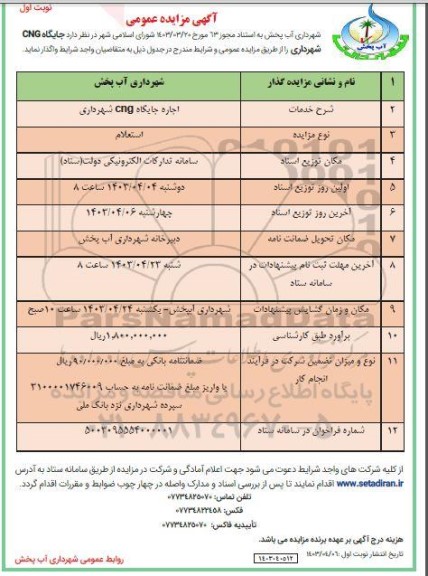 نوبت اول
آگهی مزایده عمومی
شهرداری آب پخش به استناد مجوز ۶۳ مورخ ۱۴۰۳/۰۳/۲۰ شورای اسلامی شهر در نظر دارد جایگاه CNG
شهرداری را از طریق مزایده عمومی و شرایط مندرج در جدول ذیل به متقاضیان واجد شرایط واگذار نماید.
آب پخش
۱ نام و نشانی مزایده گذار شهرداری آب پخش
۲ شرح خدمات اجاره جایگاه cng شهرداری
۳ نوع مزایده استعلام
۴ مکان توزیع اسناد سامانه تدارکات الکترونیکی دولت(ستاد)
۵ اولین روز توزیع اسناد دوشنبه ۱۴۰۳/۰۴/۰۴ ساعت ۸
۶ آخرین روز توزیع اسناد چهارشنبه ۱۴۰۳/۰۴/۰۶
۷ مکان تحویل ضمانت نامه دبیرخانه شهرداری آب پخش
۸ آخرین مهلت ثبت نام پیشنهادات در شنبه ۱۴۰۳/۰۴/۲۳ ساعت ۸
سامانه ستاد
۹ مکان و زمان گشایش پیشنهادات شهرداری آبپخش- یکشنبه ۱۴۰۳/۰۴/۲۴ ساعت ۱۰صبح
۱۰ برآورد طبق کارشناسی ۱,۸۰۰,۰۰۰,۰۰۰ریال
۱۱ نوع و میزان تضمین شرکت در فرآیند ضمانتنامه بانکی به مبلغ ۹۰/۰۰۰/۰۰۰ریال
انجام کار یا واریز مبلغ ضمانت نامه به حساب ۳۱۰۰۰۰۱۷۴۶۰۰۹
سپرده شهرداری نزد بانک ملی
۱۲ شماره فراخوان در سامانه ستاد ۵۰۰۳۰۹۵۵۵۴۰۰۰۰۰۱
ParsNamadData
از کلیه شرکت های واجد شرایط دعوت می شود جهت اعلام آمادگی و شرکت در مزایده از طریق سامانه ستاد به آدرس
www.setadiran.ir اقدام نمایند تا پس از بررسی اسناد و مدارک واصله در چهار چوب ضوابط و مقررات اقدام گردد.
تلفن تماس: ۰۷۷۳۴۸۲۵۰۷۰
فکس: ۰۷۷۳۴۸۲۲۴۵۸
تأییدیه فاکس: ۰۷۷۳۴۸۲۵۰۷۰
هزینه درج آگهی بر عهده برنده مزایده می باشد.
تاریخ انتشار نوبت اول :۱۴۰۳/۰۴/۰۶
۱۴۰۳۰۴۰۵۱۲
روابط عمومی شهرداری آب پخش